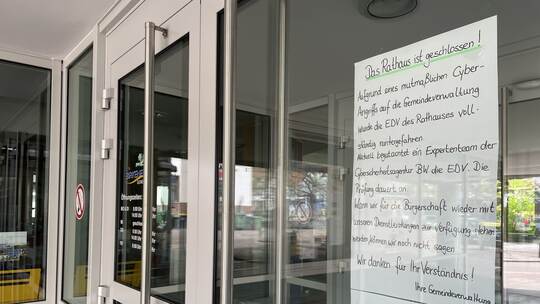 Das Rathaus ist geschlossen!
Aufgrund eines mutmaßlichen Cyber-
Angriffs auf die Gemeindeverwaltung
wurde die EDV des Rathauses voll-
ständig runtergefahren.
Aktuell begutachtet ein Expertenteam der
Cybersicherheitsagentur BW die EDV. Die
Prüfung dauert an.
Wann wir für die Bürgerschaft wieder mit
unseren Dienstleistungen zur Verfügung stehen
werden, können wir noch nicht sagen.
Wir danken für Ihr Verständnis!
Ihre Gemeindeverwaltung